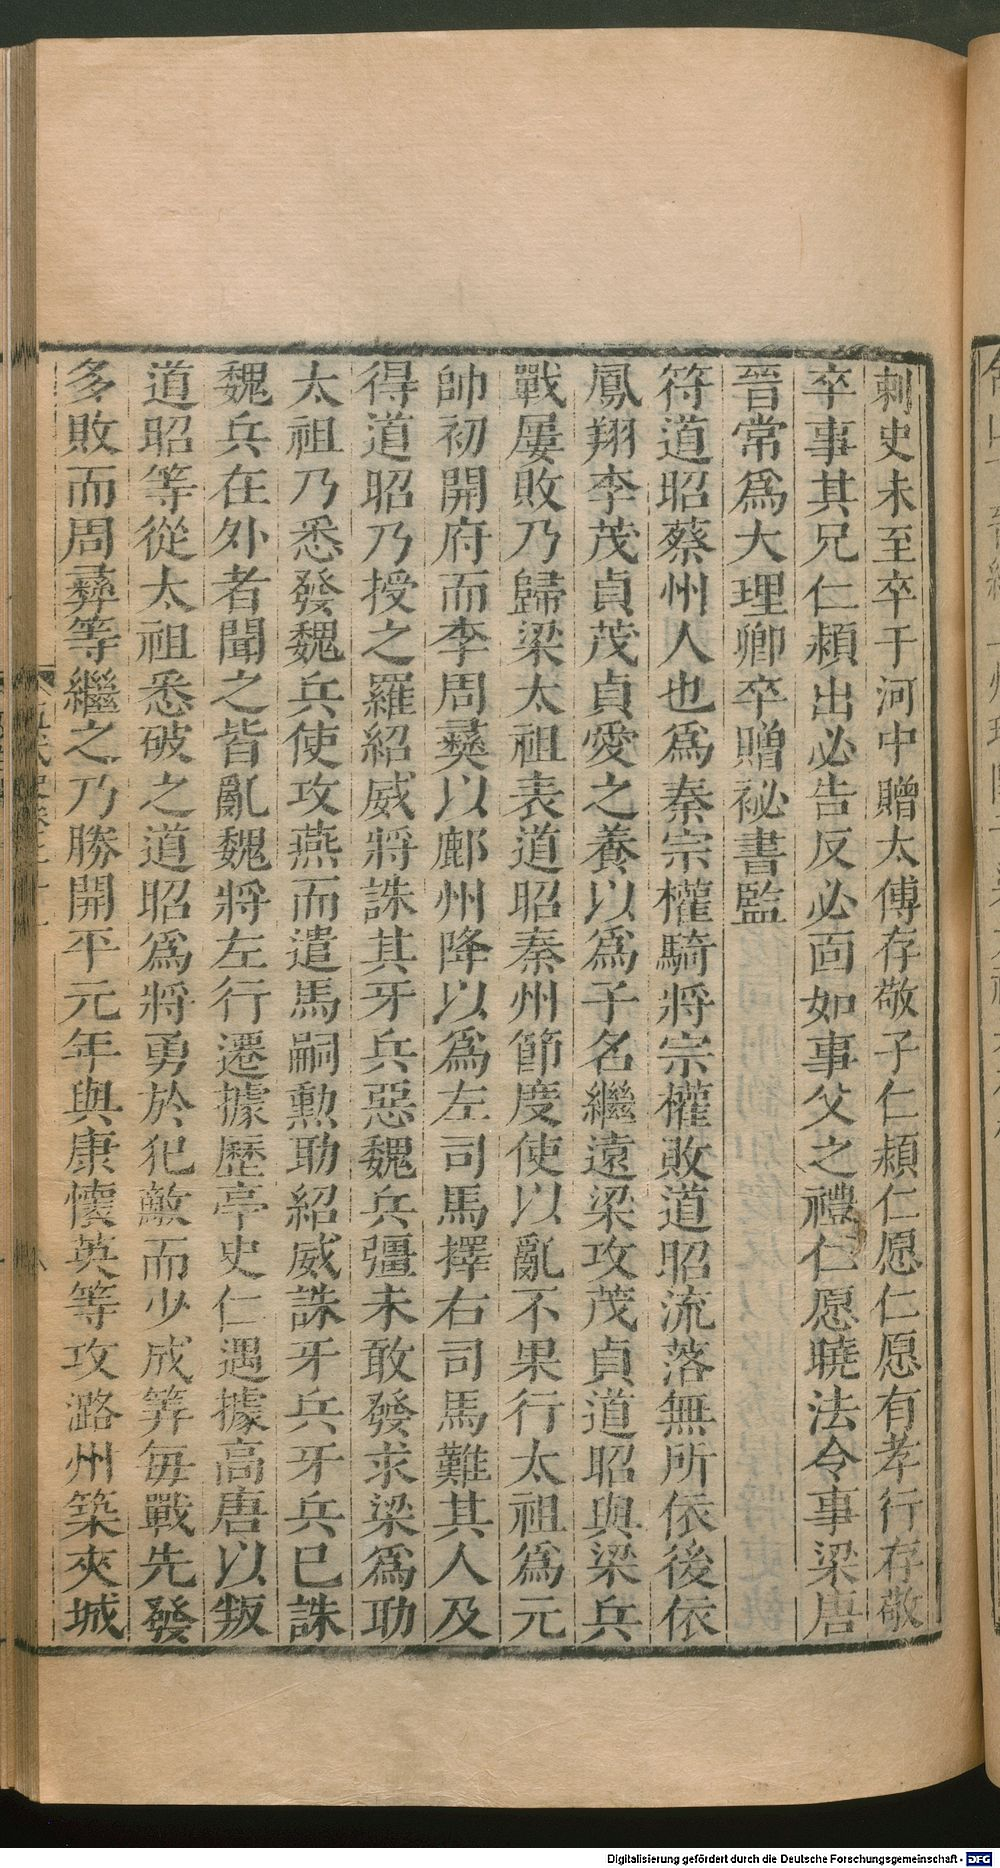 刺史未至卒于河中贈太傅存敬子仁頴仁愿仁愿有孝行存敬
卒事其兄仁頴出必告反必面如事父之禮仁愿曉法令事梁唐
晉常爲大理卿卒贈祕書監
符道昭蔡州人也爲秦宗權騎將宗權敗道昭流落無所依後依
鳳翔李茂貞茂貞愛之養以爲子名繼遠梁攻茂貞道昭與梁兵
戰屢敗乃歸梁太祖表道昭秦州節度使以亂不果行太祖爲元
帥初開府而李周彞以鄜州降以爲左司馬擇右司馬難其人及
得道昭乃授之羅紹威將誅其牙兵惡魏兵彊未敢發求梁爲助
太祖乃悉發魏兵使攻燕而遣馬嗣勲助紹威誅牙兵牙兵已誅
魏兵在外者聞之皆亂魏將左行遷據歷亭史仁遇據高唐以叛
道昭等從太祖悉破之道昭爲將勇於犯敵而少成筭每戰先發
多敗而周彞等繼之乃勝開平元年與康懷英等攻潞州築夾城
Digitalisierung gefördert durch die Deutsche Forschungsgemeinschaft - DFG